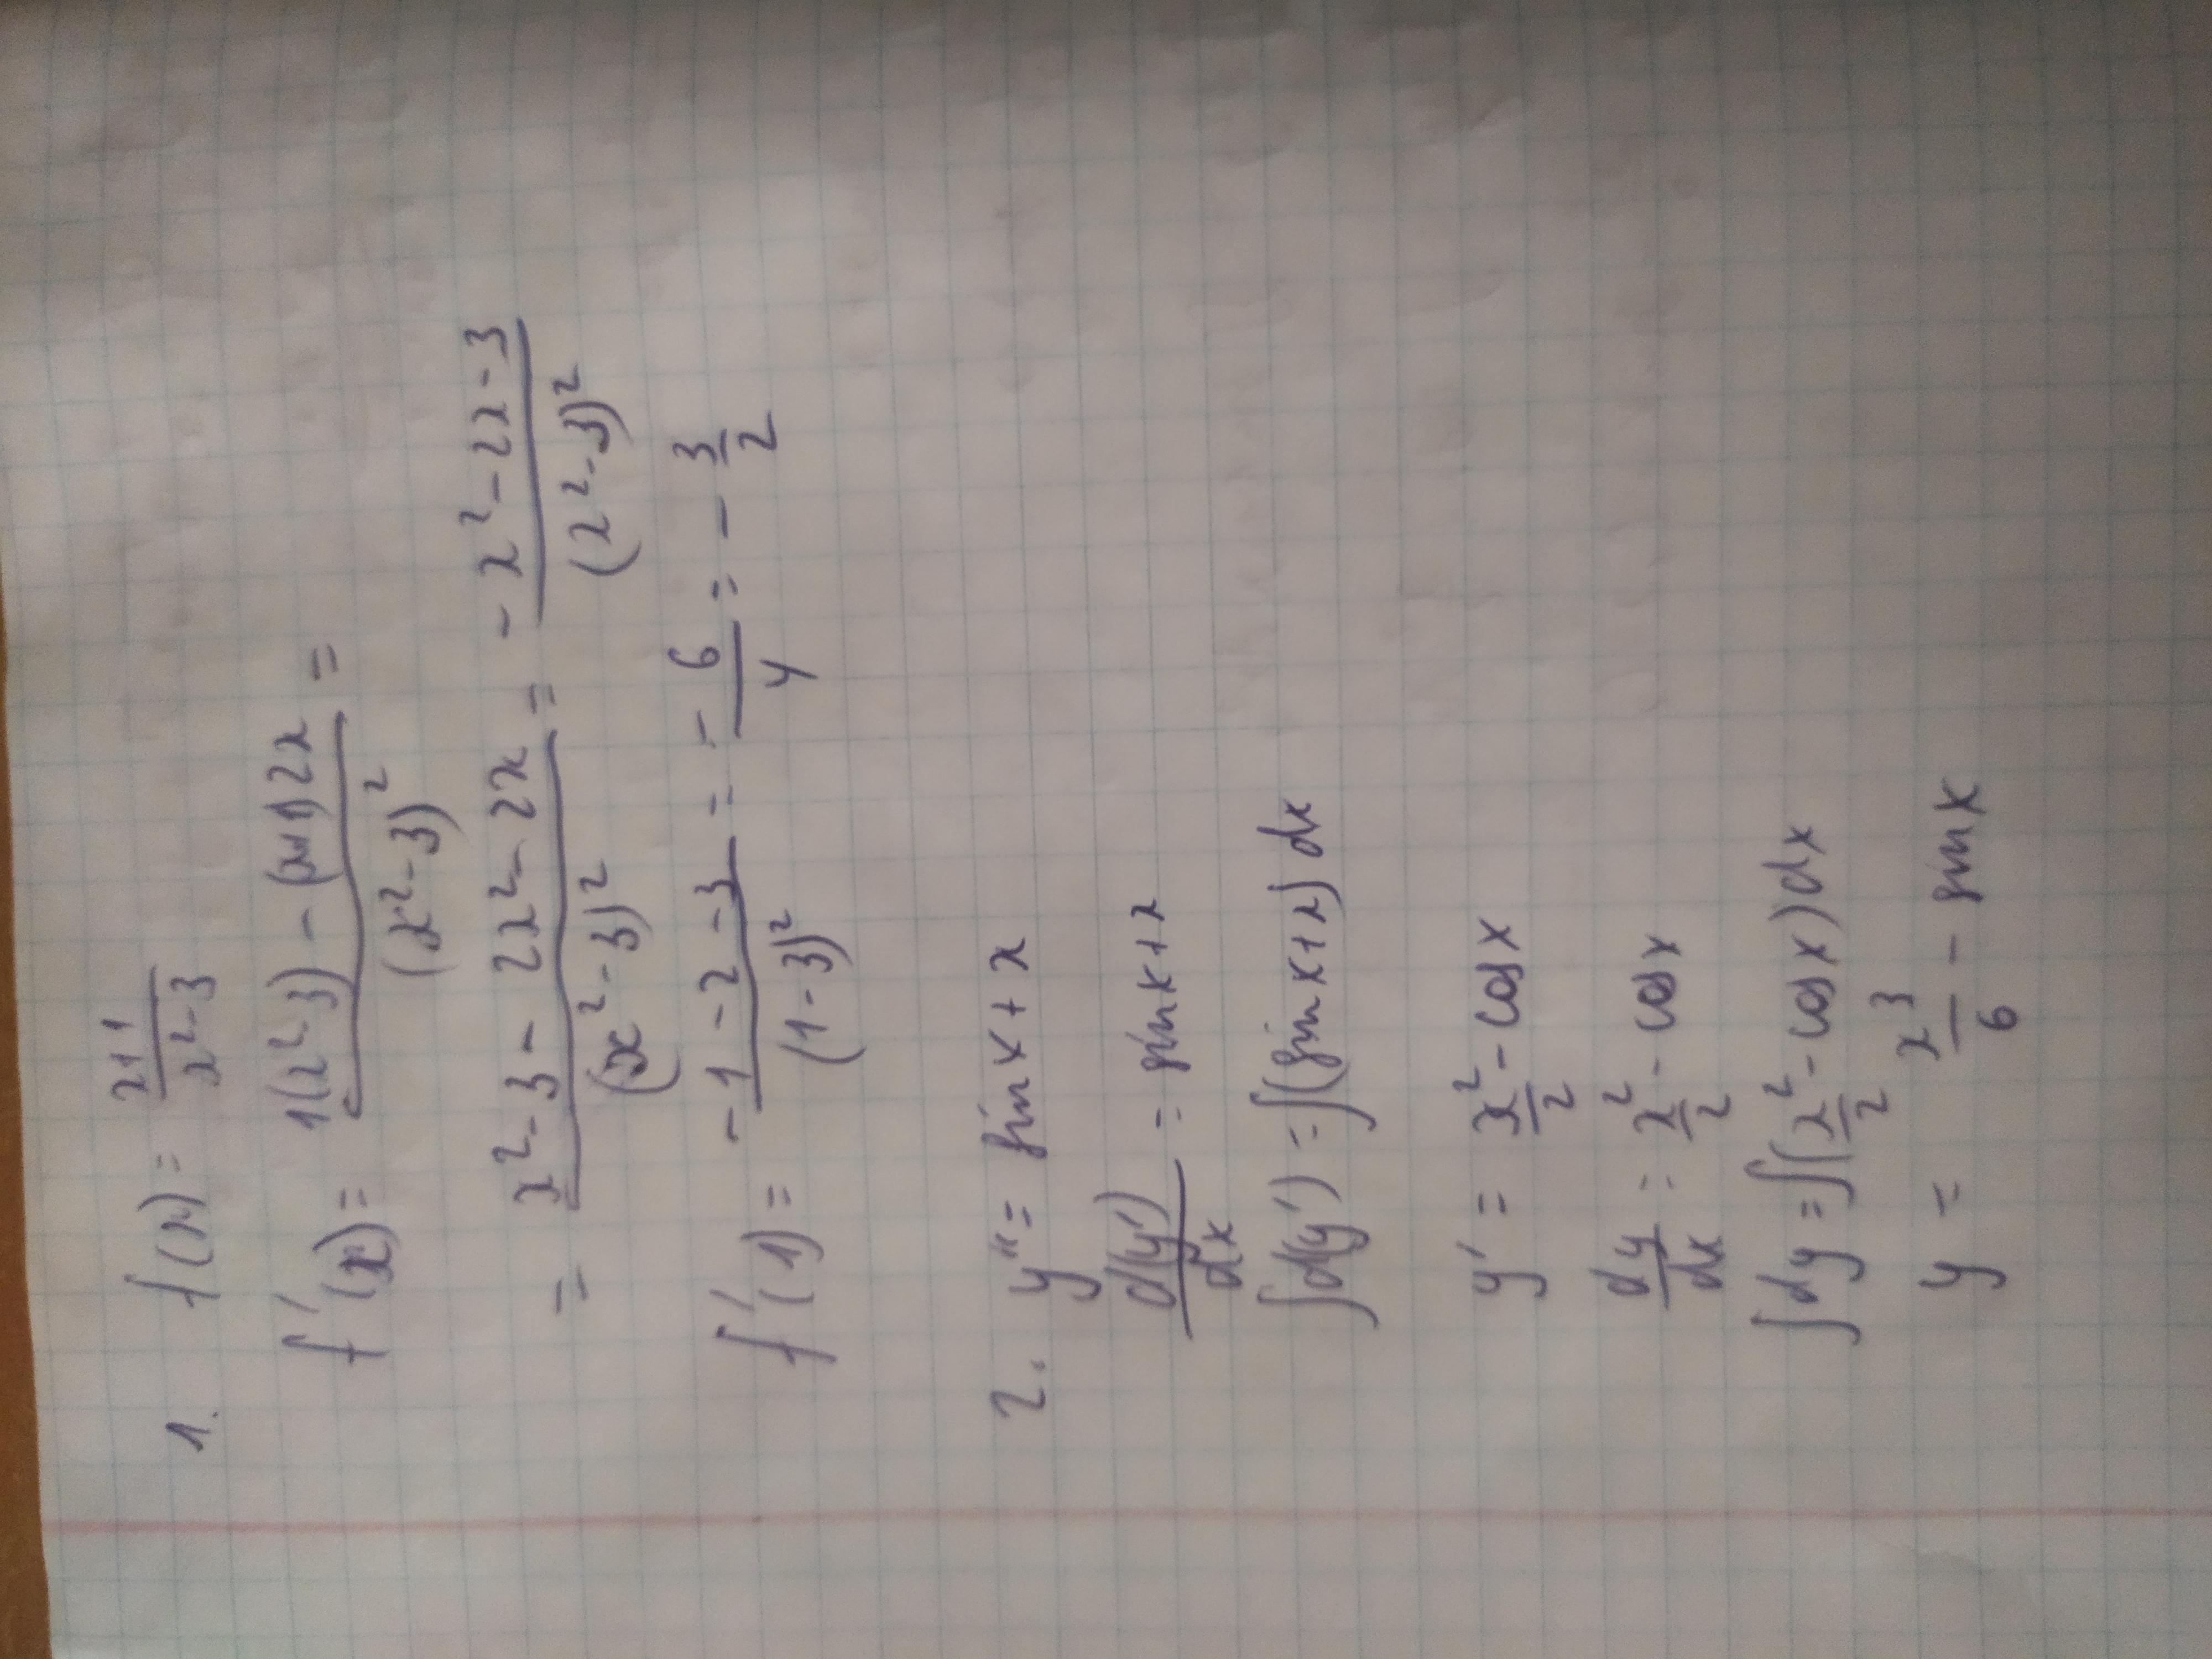 1. f(x) = \frac{x+1}{x^2-3}
f'(x) = \frac{1(x^2-3) - (x+1)2x}{(x^2-3)^2} =
= \frac{x^2-3-2x^2-2x}{(x^2-3)^2} = \frac{-x^2-2x-3}{(x^2-3)^2}
f'(1) = \frac{-1-2-3}{(1-3)^2} = -\frac{6}{4} = -\frac{3}{2}
2. y'' = sin x + x
\frac{d(y')}{dx} = sin x + x
∫d(y') = ∫(sin x + x) dx
y' = \frac{x^2}{2} - cos x
\frac{dy}{dx} = \frac{x^2}{2} - cos x
∫dy = ∫(\frac{x^2}{2} - cos x) dx
y = \frac{x^3}{6} - sin x